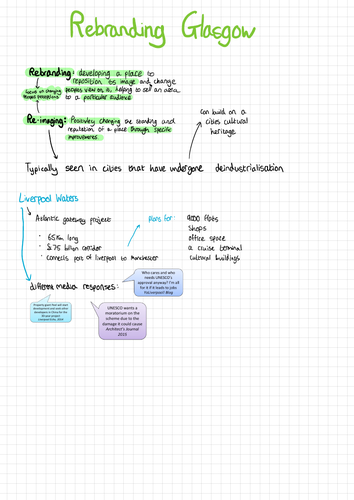 Rebranding Glasgow
Rebranding: developing a place to
reposition its image and change
peoples view on it, helping to sell an area
to a particular audience
focus on changing
peoples perceptions
Re-imaging: Positively changing the standing and
reputation of a place through specific
improvements
can build on a
cities cultural
heritage
Typically seen in cities that have undergone deindustrialisation
Liverpool Waters
Atlantic gateway project
• 65km long
• $75 billion corridor
• connects port of liverpool to manchester
plans for:
9000 flats
shops
office space
a cruise terminal
cultural buildings
different media responses:
Who cares and who
needs UNESCO's
approval anyway? I'm all
for it if it leads to jobs
Blog
UNESCO wants a
moratorium on the
scheme due to the
damage it could cause
Architect's Journal
2013